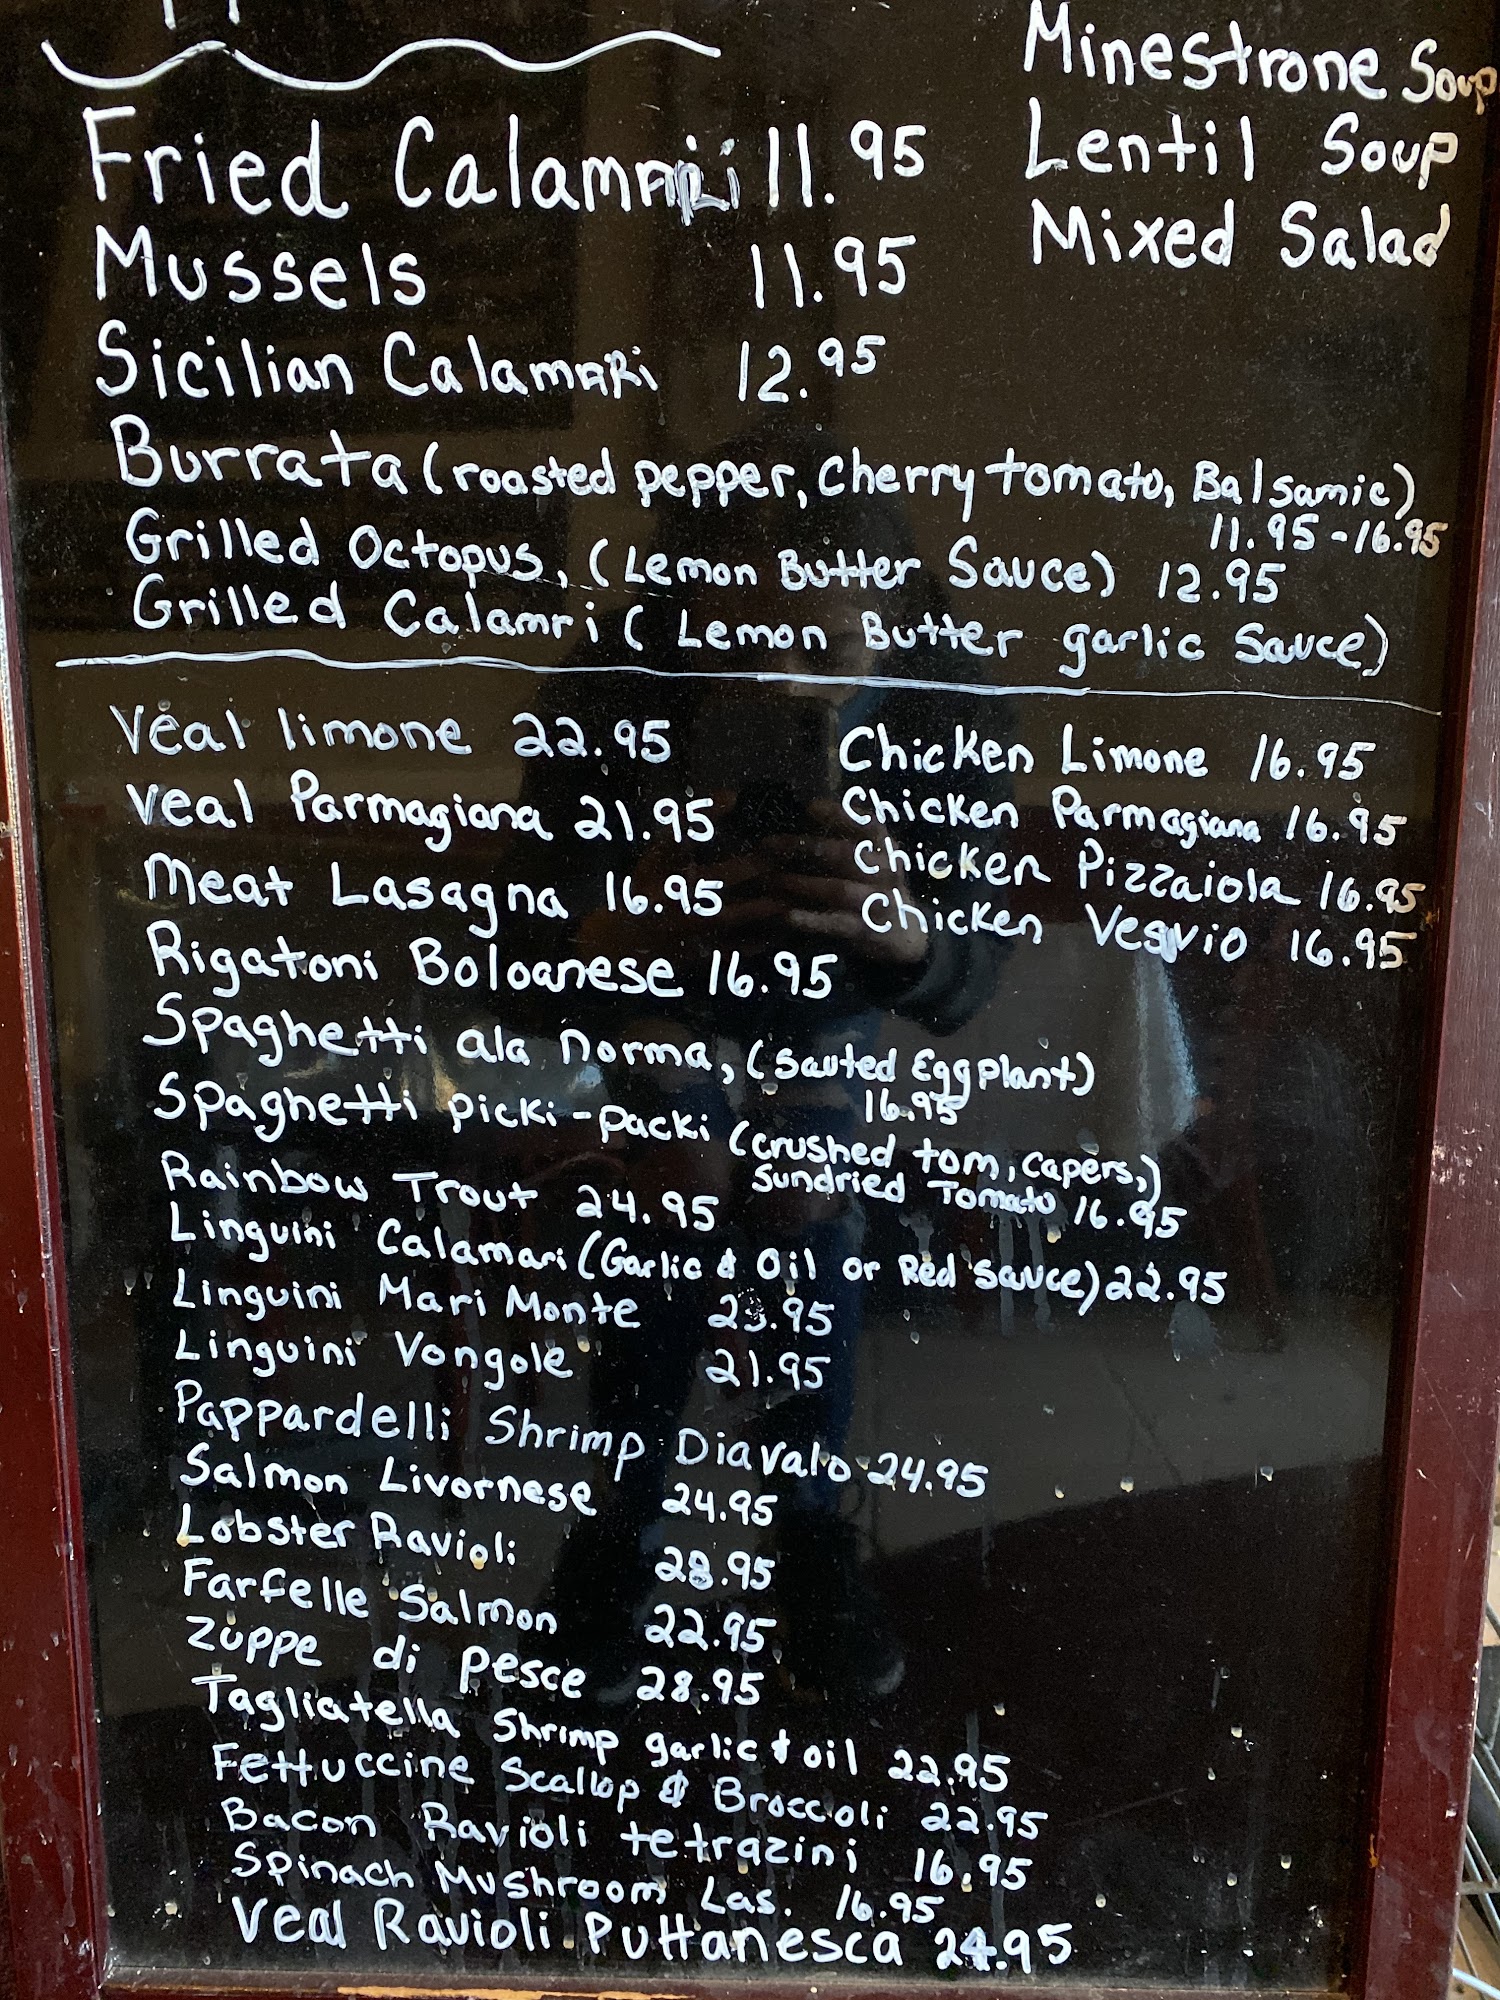 Minestrone Soup
Lentil Soup
Mixed Salad
Fried Calamari 11.95
Mussels 11.95
Sicilian Calamari 12.95
Burrata (roasted pepper, Cherry tomato, Balsamic)
11.95-16.95
Grilled Octopus, (Lemon Butter Sauce) 12.95
Grilled Calamri (Lemon Butter garlic Sauce)
Veal limone 22.95
Veal Parmagiana 21.95
Meat Lasagna 16.95
Chicken Limone 16.95
Chicken Parmagiana 16.95
Chicken Pizzaiola 16.95
Chicken Vesvio 16.95
Rigatoni Boloanese 16.95
Spaghetti ala Norma, (Sauted Eggplant)
16.95
Spaghetti picki-packi (crushed tom, capers,)
Sundried Tomato 16.95
Rainbow Trout 24.95
Linguini Calamari (Garlic & Oil or Red Sauce) 22.95
Linguini Mari Monte 23.95
Linguini Vongole 21.95
Pappardelli Shrimp Diavalo 24.95
Salmon Livornese 24.95
Lobster Ravioli 28.95
Farfelle Salmon 22.95
Zuppe di pesce 28.95
Tagliatella Shrimp garlic & oil 22.95
Fettuccine Scallop & Broccoli 22.95
Bacon Ravioli tetrazini 16.95
Spinach Mushroom Las. 16.95
Veal Ravioli Puttanesca 24.95